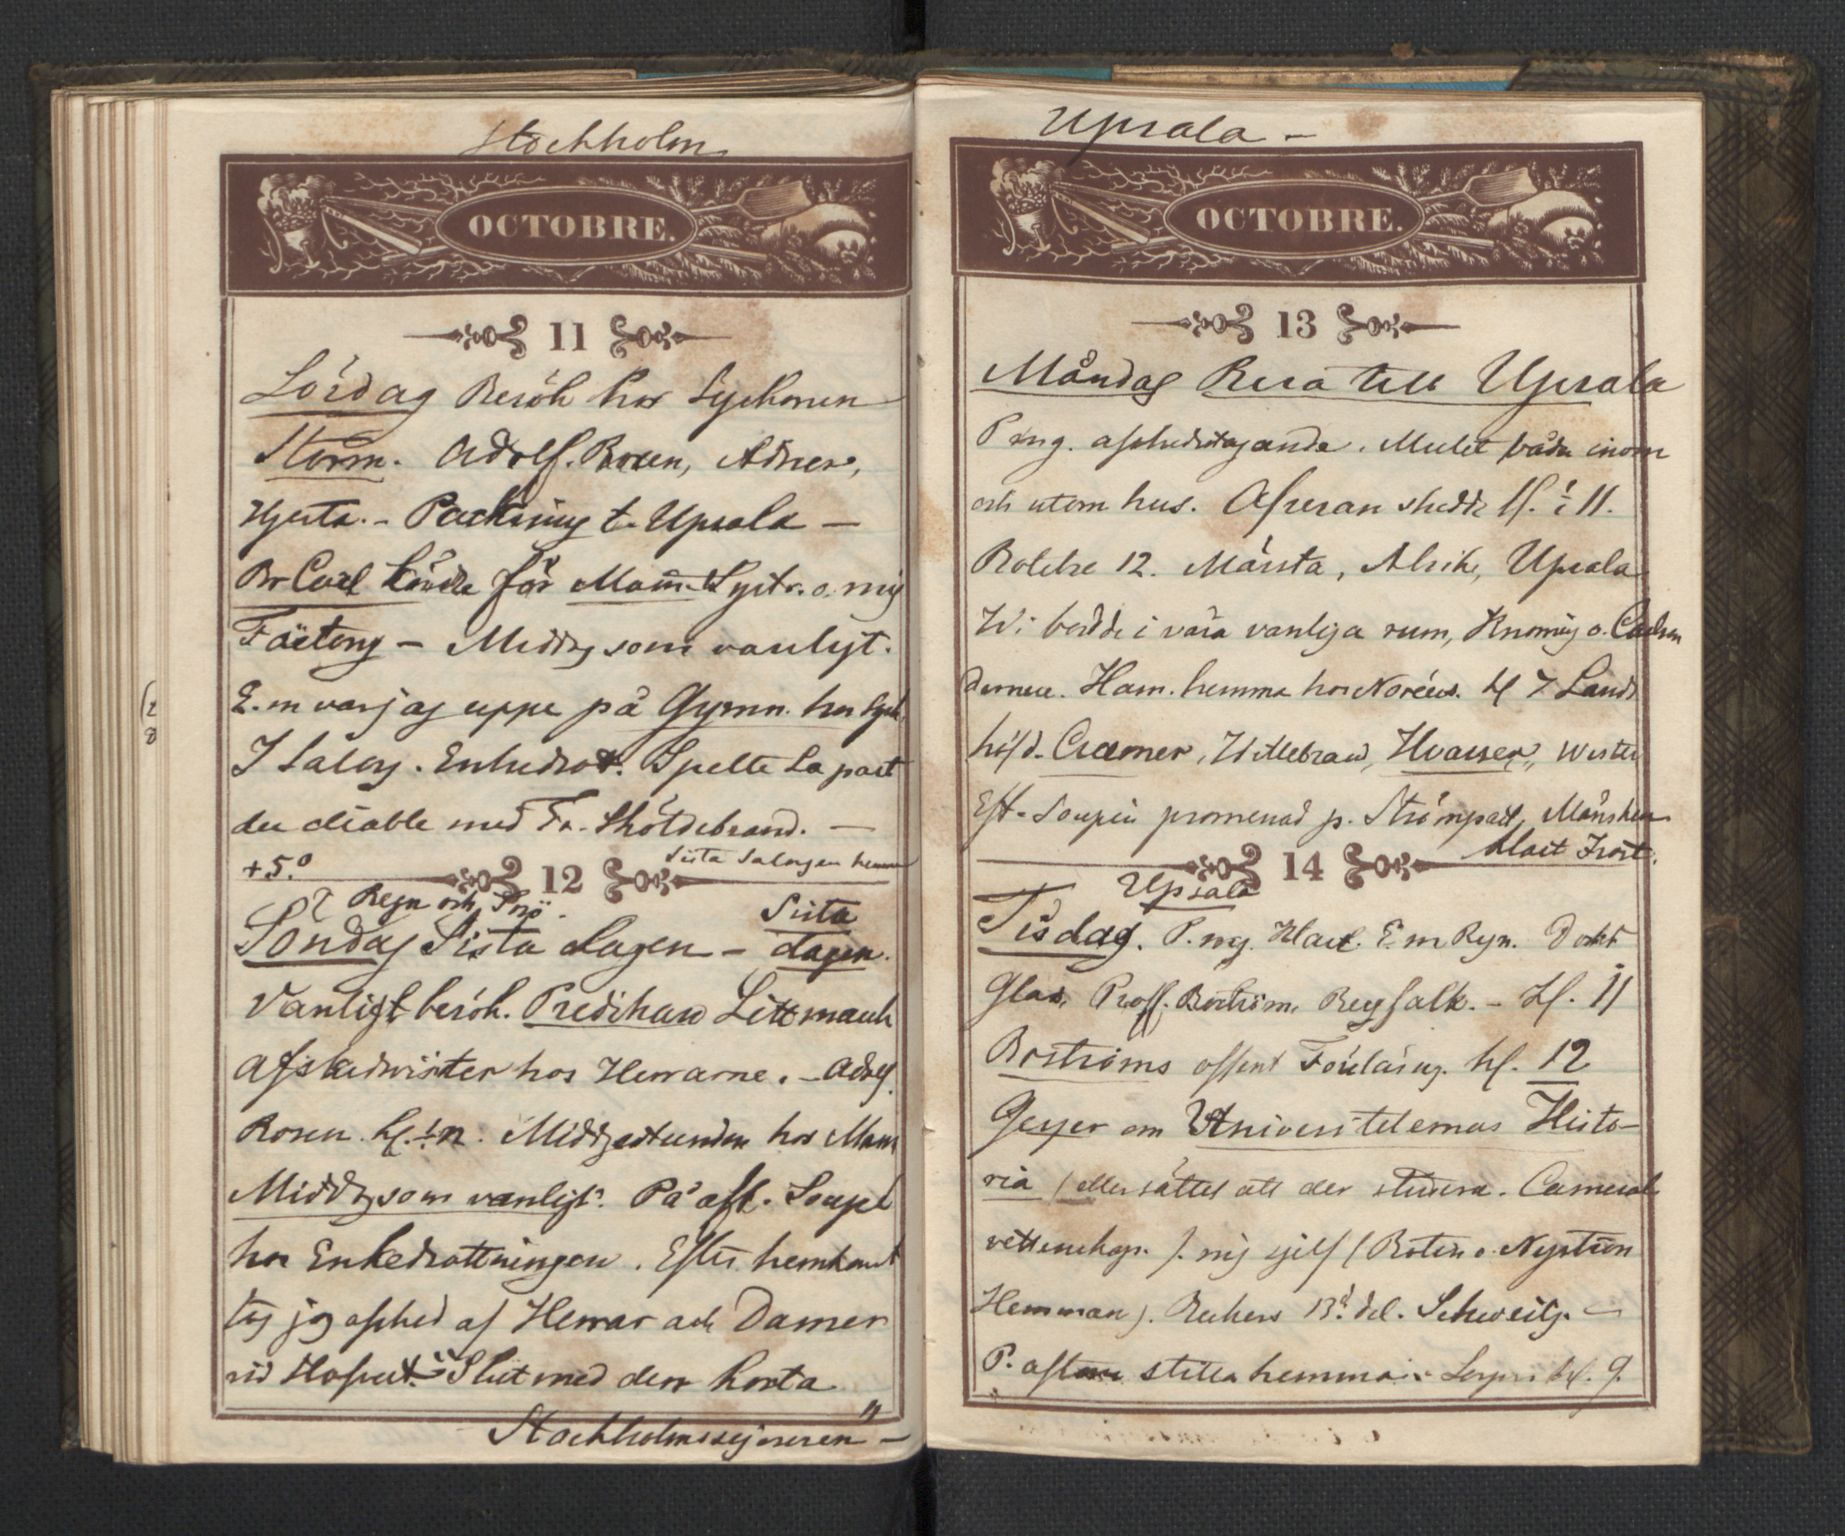 Stockholm
OCTOBRE.
11
Lördag Besök hos Syskonen
Storm. Adolf. Rosen, Adners,
Hjerta. - Packning t. Upsala -
Br Carl körde för Mam. Systr. o. mig
Faëtong - Middag som vanligt.
E. m var jag uppe på Gymn. hos
I Salong. Enkedrot. Spelte La part
du diable med Fr. Sköldebrand. -
+5.° 12 Sista Salongen hemma
Regn och Snö.
Söndag Sista dagen - Sista
dagen.
Vanligt besök. Predikan Littmanh
Afskedvisiter hos Herrarne. - Adolf.
Rosen. kl. Middagsstunden hos Mam
Middag som vanligt. På aft. Soupé
hos Enkedrottningen. Efter hemkomst
tog jag afsked af Herrar och Damer
vid Hofvet. Slut med den korta
Stockholmssejouren -
Upsala -
OCTOBRE.
13
Måndag Resa till Upsala
P mg. afskedstagande. Mulet både inom
och utom hus. Afresan skedde kl. ½ 11.
Rotebro 12. Märsta, Alsike, Upsala
Wi bodde i våra vanliga rum, Konung o.
Ham. hemma hos Noréus. kl 7 Lands
höfd. Craemer, Hillebrand, Hvasser,
Eft. Soupén promenad p. Strömpart, Månsken
14 klart Frost.
Upsala
Tisdag. P. mg. Klart. E m Regn. Dokt
Glas, Proff. Boström, Bergfalk. - kl. 11
Boströms offent Föreläsng. kl. 12
Geyer om Universiteternas Histo-
ria / eller sättet att der studera. Cameral
vettenskap. f. mig sjelf (Boten o. Nystun
Hemman). Beckers 13.d del. Schweitz. -
P. aftonen stilla hemma. - Soupé kl. 9.